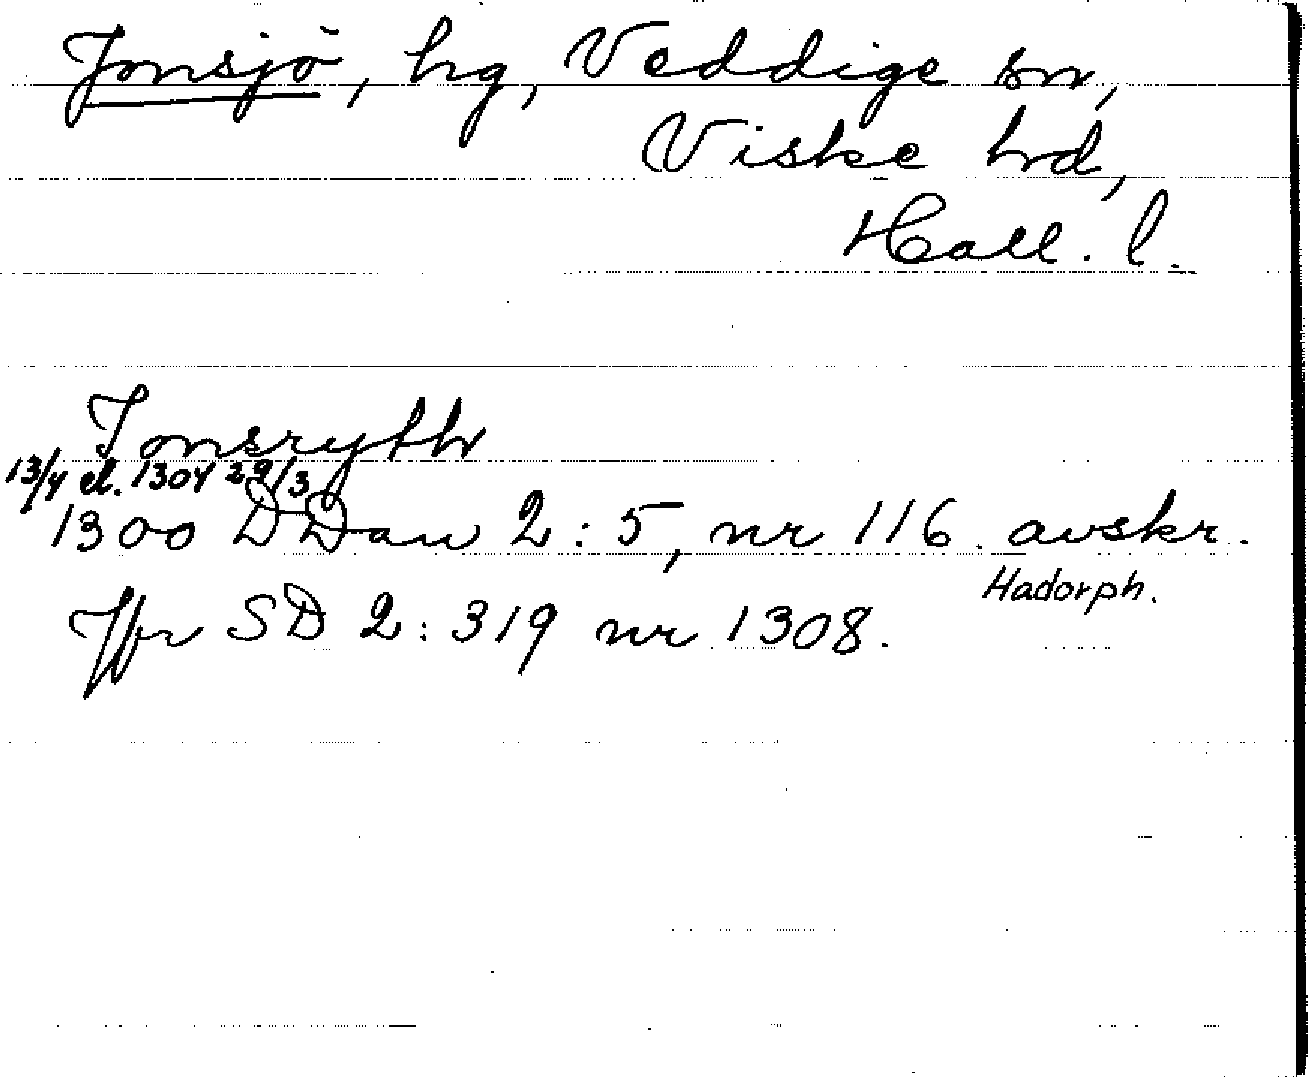 Jonsjö, hg, Veddige sn,
Viske hrd,
Hall. l.
Jonsryth
13/4 el. 1304 29/3
1300 DDan 2:5, nr 116. avskr.
Hadorph.
Jfr SD 2:319 nr 1308.